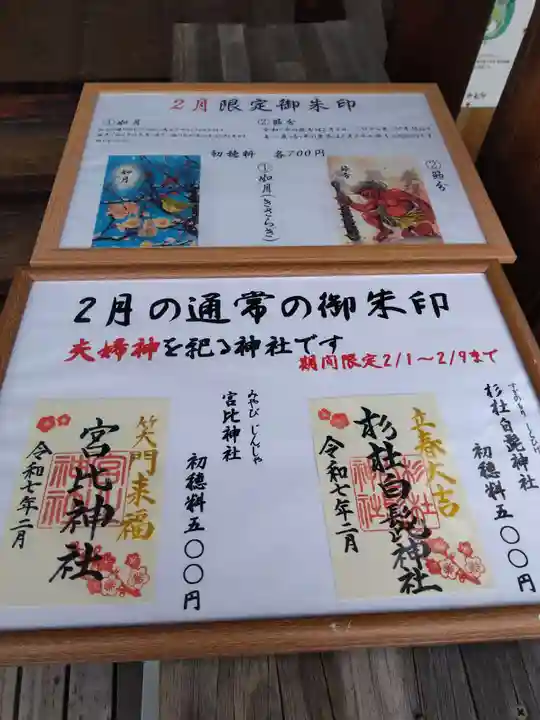 2月限定御朱印
①如月
②節分
初穂料 各700円
如月
①如月(きさらぎ)
節分
②節分
2月の通常の御朱印
夫婦神を祀る神社です
期間限定2/1~2/9まで
立春大吉
杉杜白髭神社
令和七年二月
杉杜白髭神社
初穂料五〇〇円
笑門来福
宮比神社
令和七年二月
みやび じんじゃ
宮比神社
初穂料五〇〇円